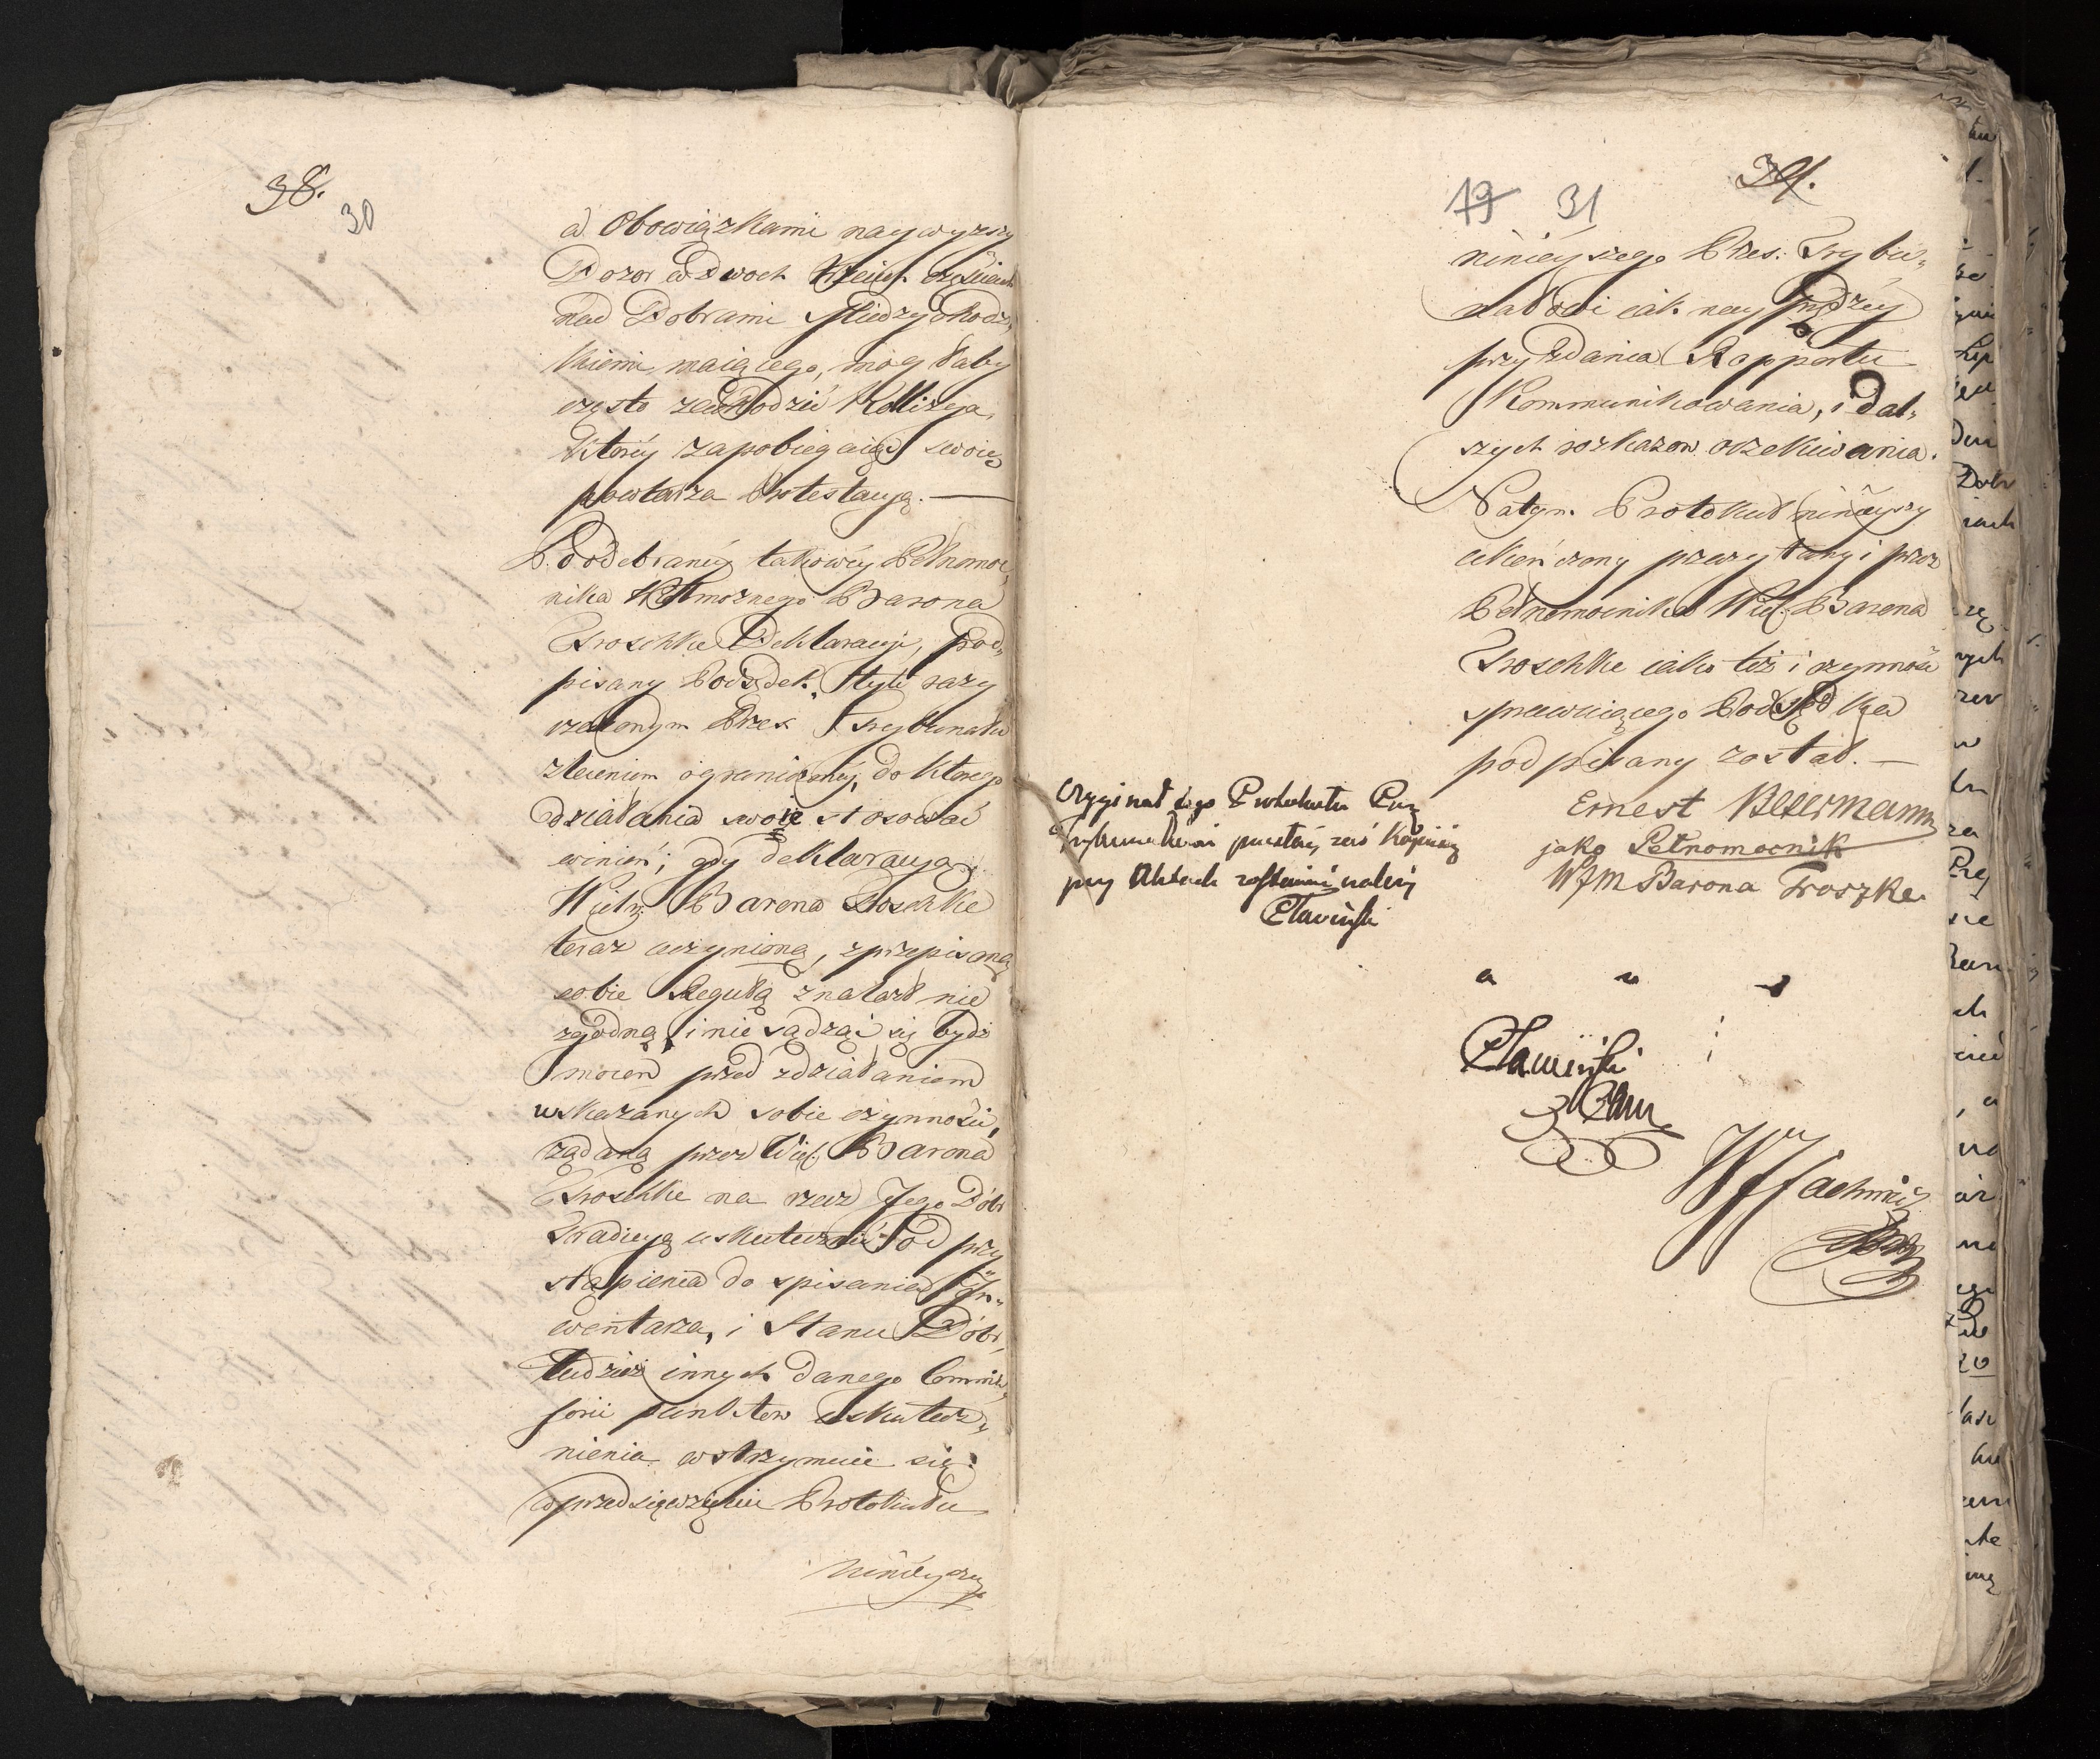 38.
30
a Obowiązkami naywyzszy
Dozor w Dwoch trzecich częściach
nad Dobrami Międzychodz„
kiemi maiącego, mogłaby
często zachodzić Kollizya,
ktorey zapobiegaiąc swoię
powtarza Protestacyą. —
Po odebraney takowey Pełnomoc„
nika Wielmożnego Barona
Troschke Deklaracyi, pod„
pisany Podsędek, tyle razy
rzeczonym Prześ. Trybunału
zleceniem ograniczony, do ktorego
działania swoie stosować
winien; gdy deklaracyą
Wielm. Barona Troschke
teraz uczynioną, z przepisaną
sobie Regułą znalazł nie
zgodną, i nie sądząc się bydź
mocen przed zdziałaniem
wskazanych sobie czynności,
żądaną przez Wiel. Barona
Troschke na rzecz Jego Dóbr
Tradicyą uskutecznić od przy
stąpienia do spisania In„
wentarza, i Stanu Dóbr,
tudzież innych danego Commis„
sorii punktow uskutecz„
nienia wstrzymuie się.
a przedsięwzięcie Protokułu
ninieyszego
19 31
39.
ninieyszego Prześ. Trybu„
nałowi iak nayprędzey
przy zdaniu Rapportu
Kommunikowania, i dal„
szych rozkazow oczekiwania.
Na tym Protokuł ninieyszy
ukończony przeczytany i przez
Pełnomocnika Wiel. Barona
Troschke iako też i czynność
sprawuiącego Podsędka
podpisany został. —
Ernest Bettermann
jako Pełnomocnik
WJm Barona Troszke
Oryginał tego Protokułu Prześ
Trybunałowi przesłany, zaś Kopią
przy Aktach zostawić należy
a u s